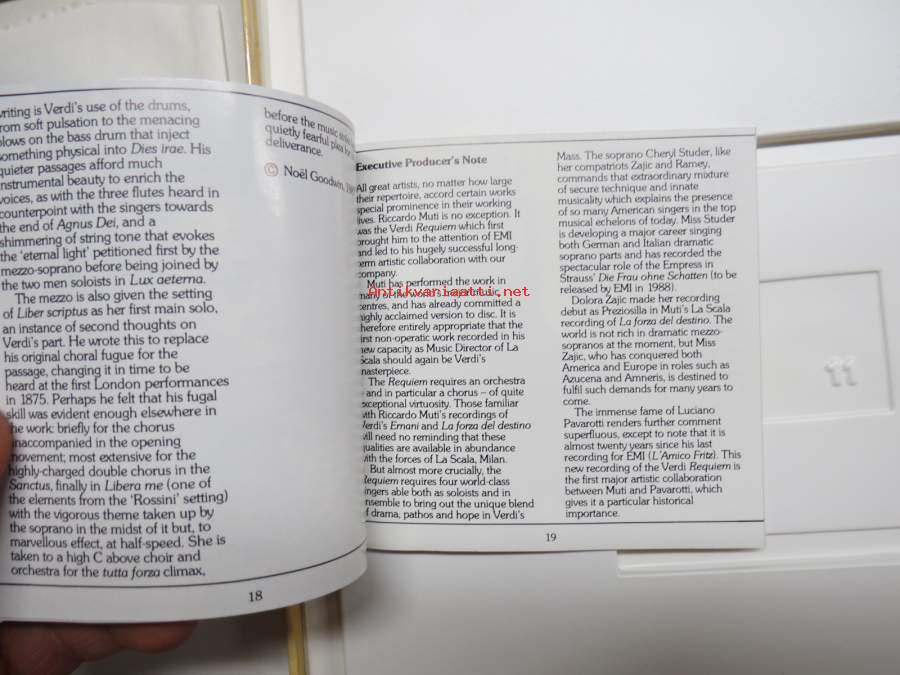 writing is Verdi's use of the drums,
from soft pulsation to the menacing
blows on the bass drum that inject
something physical into Dies irae. His
quieter passages afford much
instrumental beauty to enrich the
voices, as with the three flutes heard in
counterpoint with the singers towards
the end of Agnus Dei, and a
shimmering of string tone that evokes
the 'eternal light' petitioned first by the
mezzo-soprano before being joined by
the two men soloists in Lux aeterna.
The mezzo is also given the setting
of Liber scriptus as her first main solo,
an instance of second thoughts on
Verdi's part. He wrote this to replace
his original choral fugue for the
passage, changing it in time to be
heard at the first London performances
in 1875. Perhaps he felt that his fugal
skill was evident enough elsewhere in
the work: briefly for the chorus
unaccompanied in the opening
movement; most extensive for the
highly-charged double chorus in the
Sanctus, finally in Libera me (one of
the elements from the 'Rossini' setting)
with the vigorous theme taken up by
the soprano in the midst of it but, to
marvellous effect, at half-speed. She is
taken to a high C above choir and
orchestra for the tutta forza climax,
18
before the music
quietly fearful plea for
deliverance.
© Noël Goodwin,
Executive Producer's Note
All great artists, no matter how large
their repertoire, accord certain works
special prominence in their working
lives. Riccardo Muti is no exception. It
was the Verdi Requiem which first
brought him to the attention of EMI
and led to his hugely successful long-
term artistic collaboration with our
company.
Muti has performed the work in
many of the world's
centres, and has already committed a
highly acclaimed version to disc. It is
therefore entirely appropriate that the
first non-operatic work recorded in his
new capacity as Music Director of La
Scala should again be Verdi's
masterpiece.
The Requiem requires an orchestra
– and in particular a chorus – of quite
exceptional virtuosity. Those familiar
with Riccardo Muti's recordings of
Verdi's Ernani and La forza del destino
will need no reminding that these
qualities are available in abundance
with the forces of La Scala, Milan.
But almost more crucially, the
Requiem requires four world-class
singers able both as soloists and in
ensemble to bring out the unique blend
of drama, pathos and hope in Verdi's
Mass. The soprano Cheryl Studer, like
her compatriots Zajic and Ramey,
commands that extraordinary mixture
of secure technique and innate
musicality which explains the presence
of so many American singers in the top
musical echelons of today. Miss Studer
is developing a major career singing
both German and Italian dramatic
soprano parts and has recorded the
spectacular role of the Empress in
Strauss' Die Frau ohne Schatten (to be
released by EMI in 1988).
Dolora Zajic made her recording
debut as Preziosilla in Muti's La Scala
recording of La forza del destino. The
world is not rich in dramatic mezzo-
sopranos at the moment, but Miss
Zajic, who has conquered both
America and Europe in roles such as
Azucena and Amneris, is destined to
fulfil such demands for many years to
come.
The immense fame of Luciano
Pavarotti renders further comment
superfluous, except to note that it is
almost twenty years since his last
recording for EMI (L'Amico Fritz). This
new recording of the Verdi Requiem is
the first major artistic collaboration
between Muti and Pavarotti, which
gives it a particular historical
importance.
19
Antikvariaatti.net